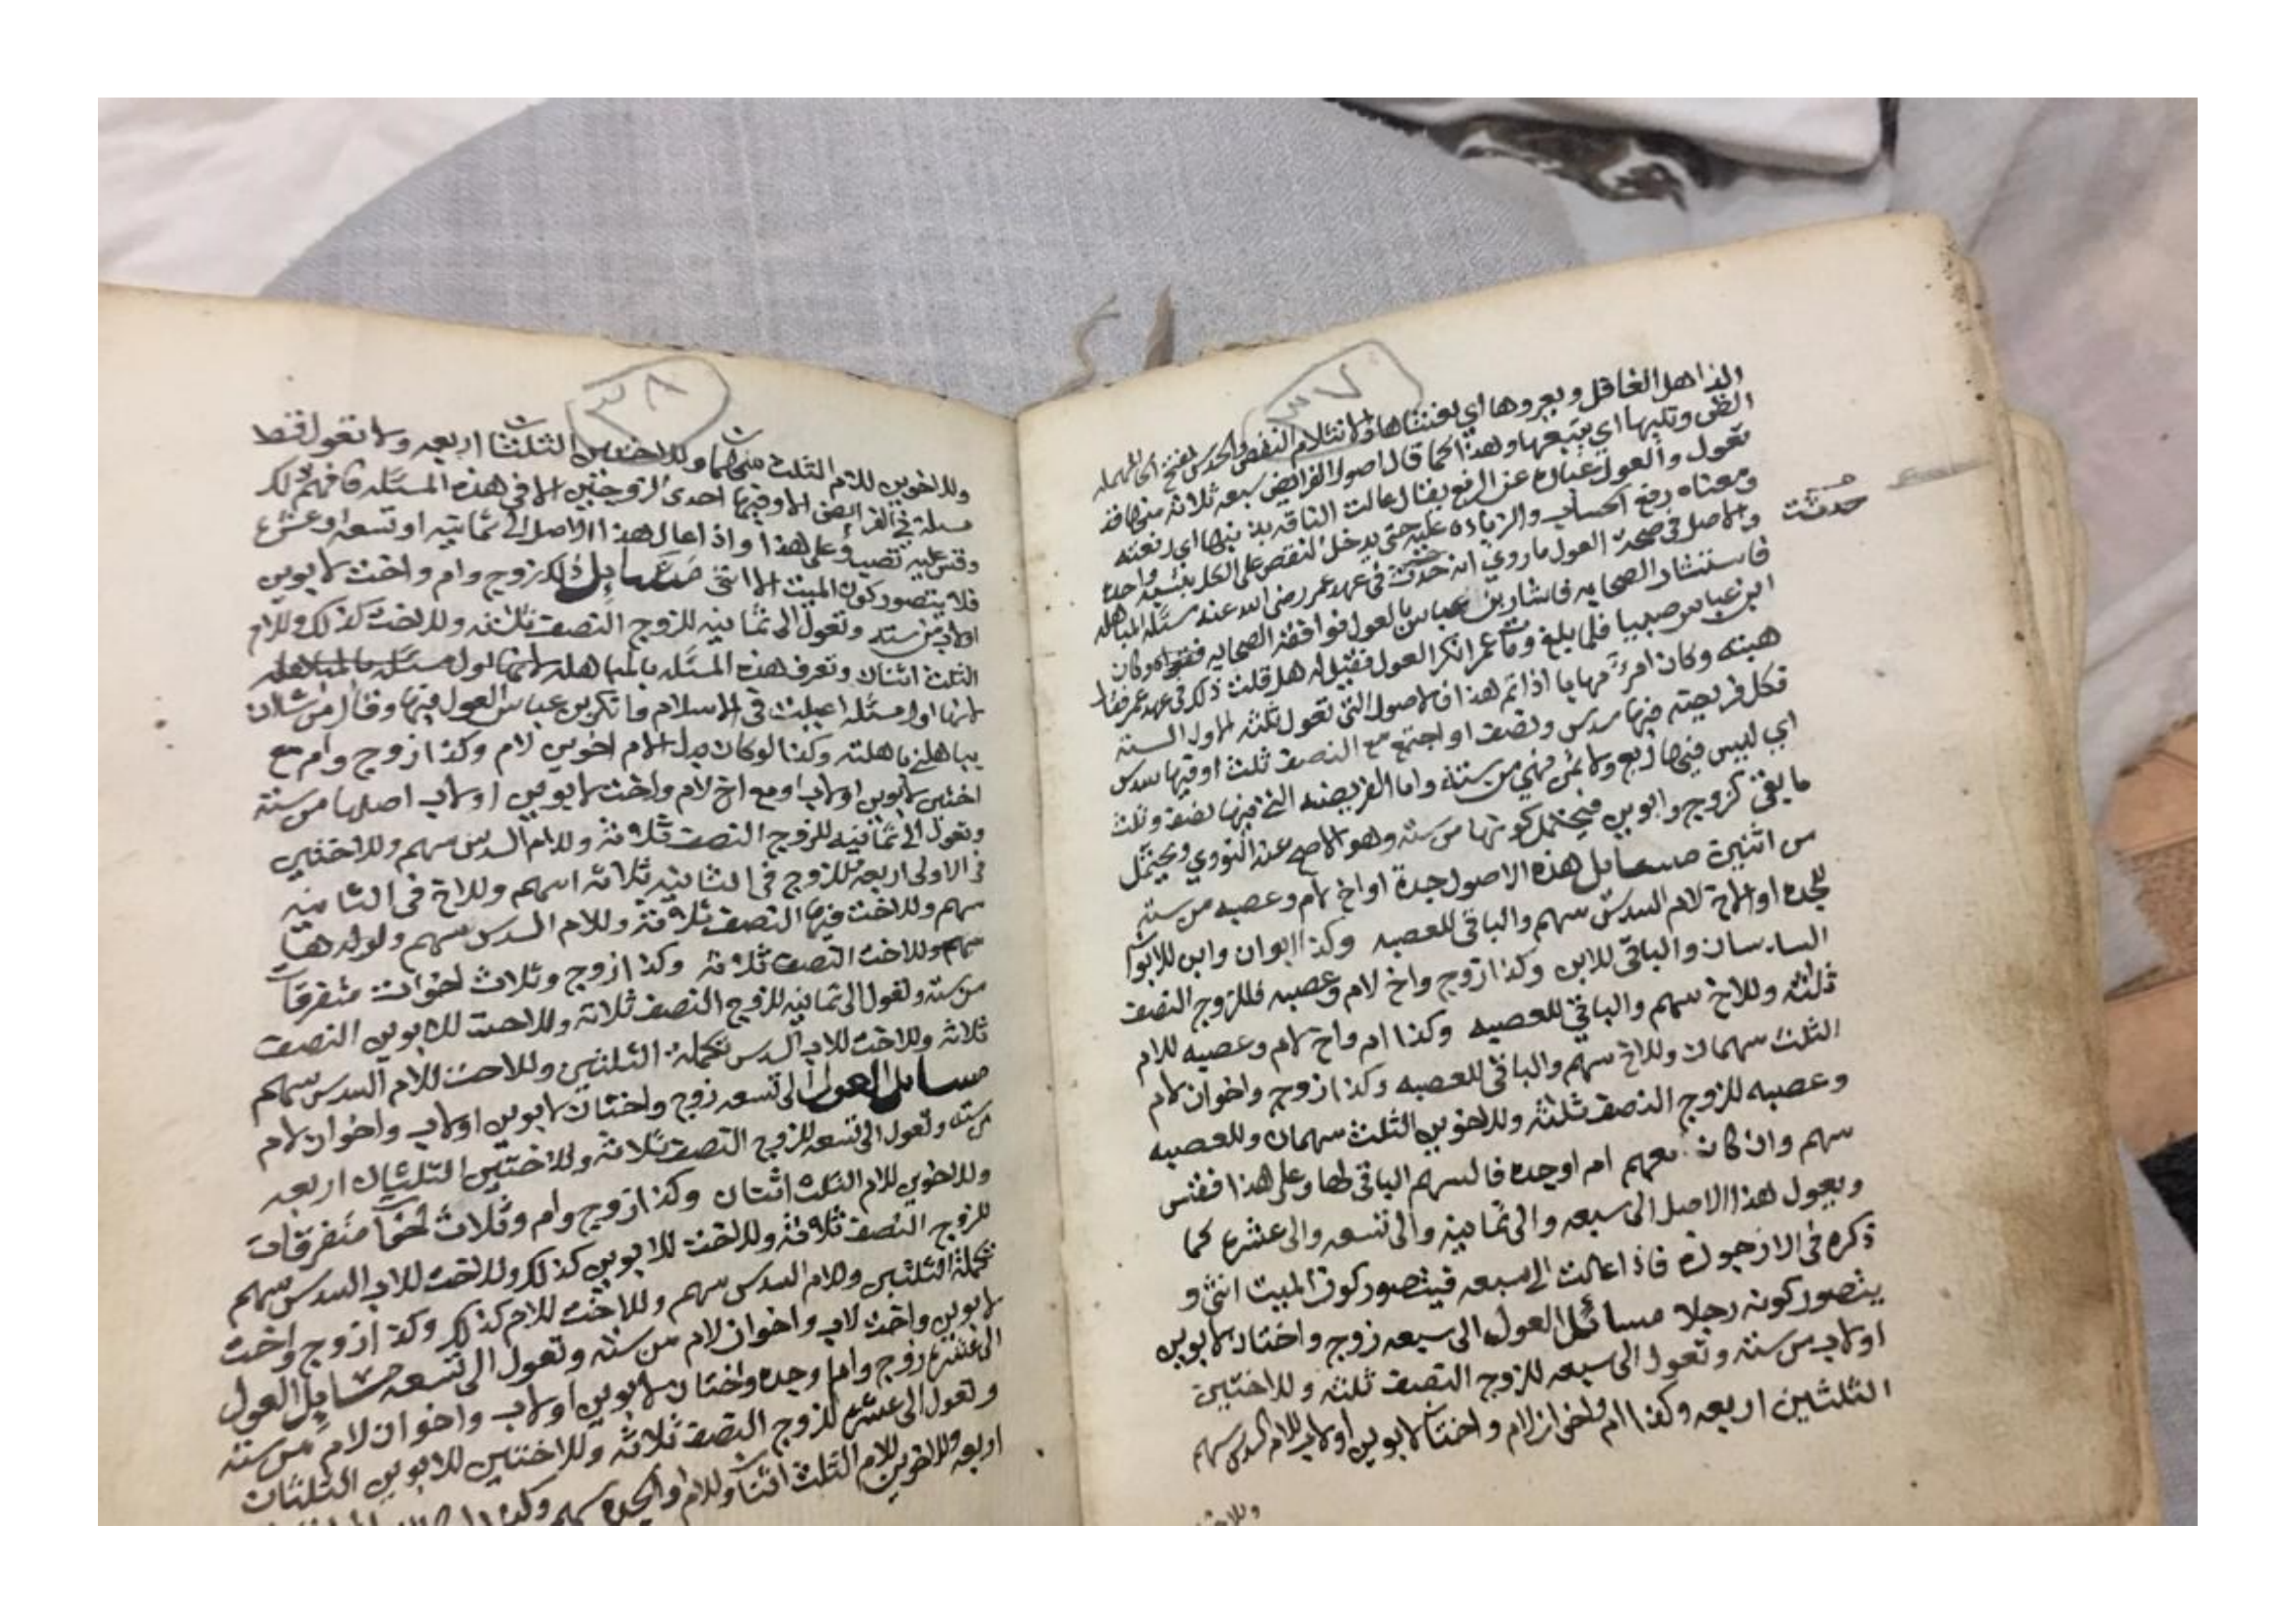 ٣٧
الذاهل الغافل ويعروها اي يغشاها والانثلام النقص والحدس بفتح الحا المهمله
الظن وتليها اي يتبعها وهذا كما قال اصول الفرايض سبعه ثلاثة منها قد
تعول والعول عباره عن الرفع يقال عالت الناقه بذنبها اي رفعته
ومعناه رفع الحساب والزياده عليه حتى يدخل النقص على الكل بنسبه واحده
والاصل في صحة العول ما روي انه حدثت في عهد عمر رضي الله عنه مسئله المباهله
حدثت
فاستشار الصحابه فاشار بن عباس بالعول فوافقه الصحابه وكان
ابن عباس صبيا فلما بلغ ومات عمر انكر العول فقيل له هل قلت ذلك في عهد عمر فقال
هبته وكان امرءا مهابا اذا تم هذا فالاصول التي تعول ثلثه الاول الستة
فكل فريضته فيها سدس ونصف او اجتمع مع النصف ثلث او فيها سدس
اي ليس فيها ربع ولا ثمن فهي من ستة واما الفريضه التي فيها نصف وثلث
ما يبقى كزوج وابوين فيحتمل كونها من سته وهو الاصح عند النووي ويحتمل
من اثنين مسايل هذه الاصول جدة او اخ لام وعصبه من سته
للجده او الاخ لام السدس سهم والباقي للعصبه وكذا ابوان وابن للابوان
السدسان والباقي للابن وكذا زوج واخ لام وعصبه فللزوج النصف
ثلثه وللاخ سهم والباقي للعصبه وكذا ام واخ لام وعصبه للام
الثلث سهمان وللاخ سهم والباقي للعصبه وكذا زوج واخوان لام
وعصبه للزوج النصف ثلثه وللاخوين الثلث سهمان وللعصبه
سهم وان كان معهم ام او جده فالسهم الباقي لها وعلى هذا فقس
ويعول هذا الاصل الى سبعه والى ثمانيه والى تسعه والى عشره كما
ذكره في الارجوزه فاذا عالت الى سبعه فيتصور كون الميت انثى و
يتصور كونه رجلا مسائل العول الى سبعه زوج واختان لابوين
او لاب من سته وتعول الى سبعه للزوج النصف ثلثه وللاختين
الثلثين اربعه وكذا ام واخوان لام واختان لابوين او لاب للام السدس سهم
٣٨
وللاخوين للام الثلث سهمان وللاختين الثلثان اربعه ولا تعول قط
مسئلة في الفرائض الا وفيها احدى الزوجين الا في هذه المسئله فافهم ذلك
وقس عليه تصيب وعلى هذا واذا عال هذا الاصل الى ثمانيه او تسعه او عشره
فلا يتصور كون الميت الا انثى مسايل ذلك زوج وام واخت لابوين
او لاب من سته وتعول الى ثمانيه للزوج النصف ثلاثه وللاخت كذلك وللام
الثلث اثنان وتعرف هذه المسئله بالمباهله لانها اول مسئله بالمباهله
لانها اول مسئله اعيلت في الاسلام فانكر بن عباس العول فيها وقال من شاء ان
يباهلني باهلته وكذا لو كان بدل الام اخوين لام وكذا زوج وام مع
اختين لابوين او لاب او مع اخ لام واخت لابوين او لاب اصلها من ستة
وتعول الى ثمانيه للزوج النصف ثلاثة وللام السدس سهم وللاختين
في الاولى اربعه للزوج في الثانيه ثلاثه اسهم وللاخ في الثانيه
سهم وللاخت فيها النصف ثلاثة وللام السدس سهم ولولدها
سهم وللاخت النصف ثلاثه وكذا زوج وثلاث اخوات متفرقات
من سته وتعول الى ثمانيه للزوج النصف ثلاثه وللاخت للابوين النصف
ثلاثه وللاخت للاب السدس تكملة الثلثين وللاخت للام السدس سهم
مسايل العول الى تسعه زوج واختان لابوين او لاب واخوان لام
من سته وتعول الى تسعه للزوج النصف ثلاثة وللاختين الثلثان اربعه
وللاخوين للام الثلث اثنان وكذا زوج وام وثلاث اخوات متفرقات
للزوج النصف ثلاثة وللاخت للابوين كذلك وللاخت للاب السدس سهم
تكملة الثلثين وللام السدس سهم وللاخت للام كذلك وكذا زوج واخت
لابوين واخت لاب واخوان لام من سته وتعول الى تسعه مسايل العول
الى عشره زوج وام وجده واختان لابوين او لاب واخوان لام من سته
وتعول الى عشره للزوج النصف ثلاثه وللاختين للابوين الثلثان
اربعه وللاخوين للام الثلث اثنان وللام او الجده سهم وكذا